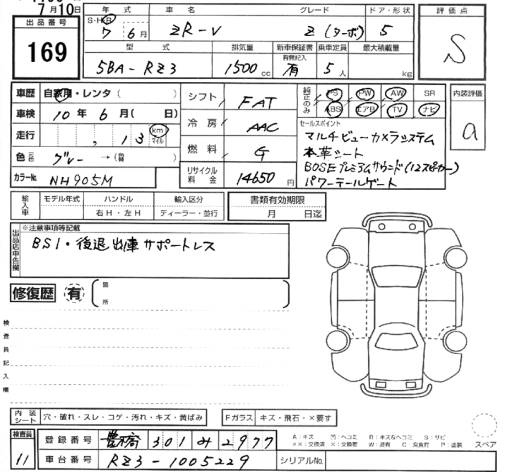 7月10日
出品番号
169
年式
車名
グレード
ドア・形状
評価点
S・H・R
7年 6月
ZR-V
Z (ターボ)
5
S
型式
排気量
新車保証書
乗車定員
最大積載量
5BA-RZ3
1500cc
有
5人
kg
車歴
自家用・レンタ( )
シフト
FAT
純正のみ
PS PW AW SR
ABS エアB TV ナビ
内装評価
a
車検
10年 6月( 日)
冷房
AAC
セールスポイント
マルチビューカメラシステム
本革シート
BOSEプレミアムサウンド(12スピーカー)
パワーテールゲート
走行
,13 km マイル
燃料
G
色
グレー→(替 )
リサイクル料金
14650円
カラーNo.
NH905M
輸入車
モデル年式
ハンドル
輸入区分
書類有効期限
年
右H・左H
ディーラー・並行
月 日迄
※注意事項等記載
出品店申告欄
BSI・後退出庫サポートレス
修復歴
有
箇所
検査員記入欄
内装シート
穴・破れ・スレ・コゲ・汚れ・キズ・黄ばみ
Fガラス
キズ・飛石・×要す
検査員
11
登録番号
301 み 2977
車台番号
RZ3-1005229
シリアルNo.
スペア